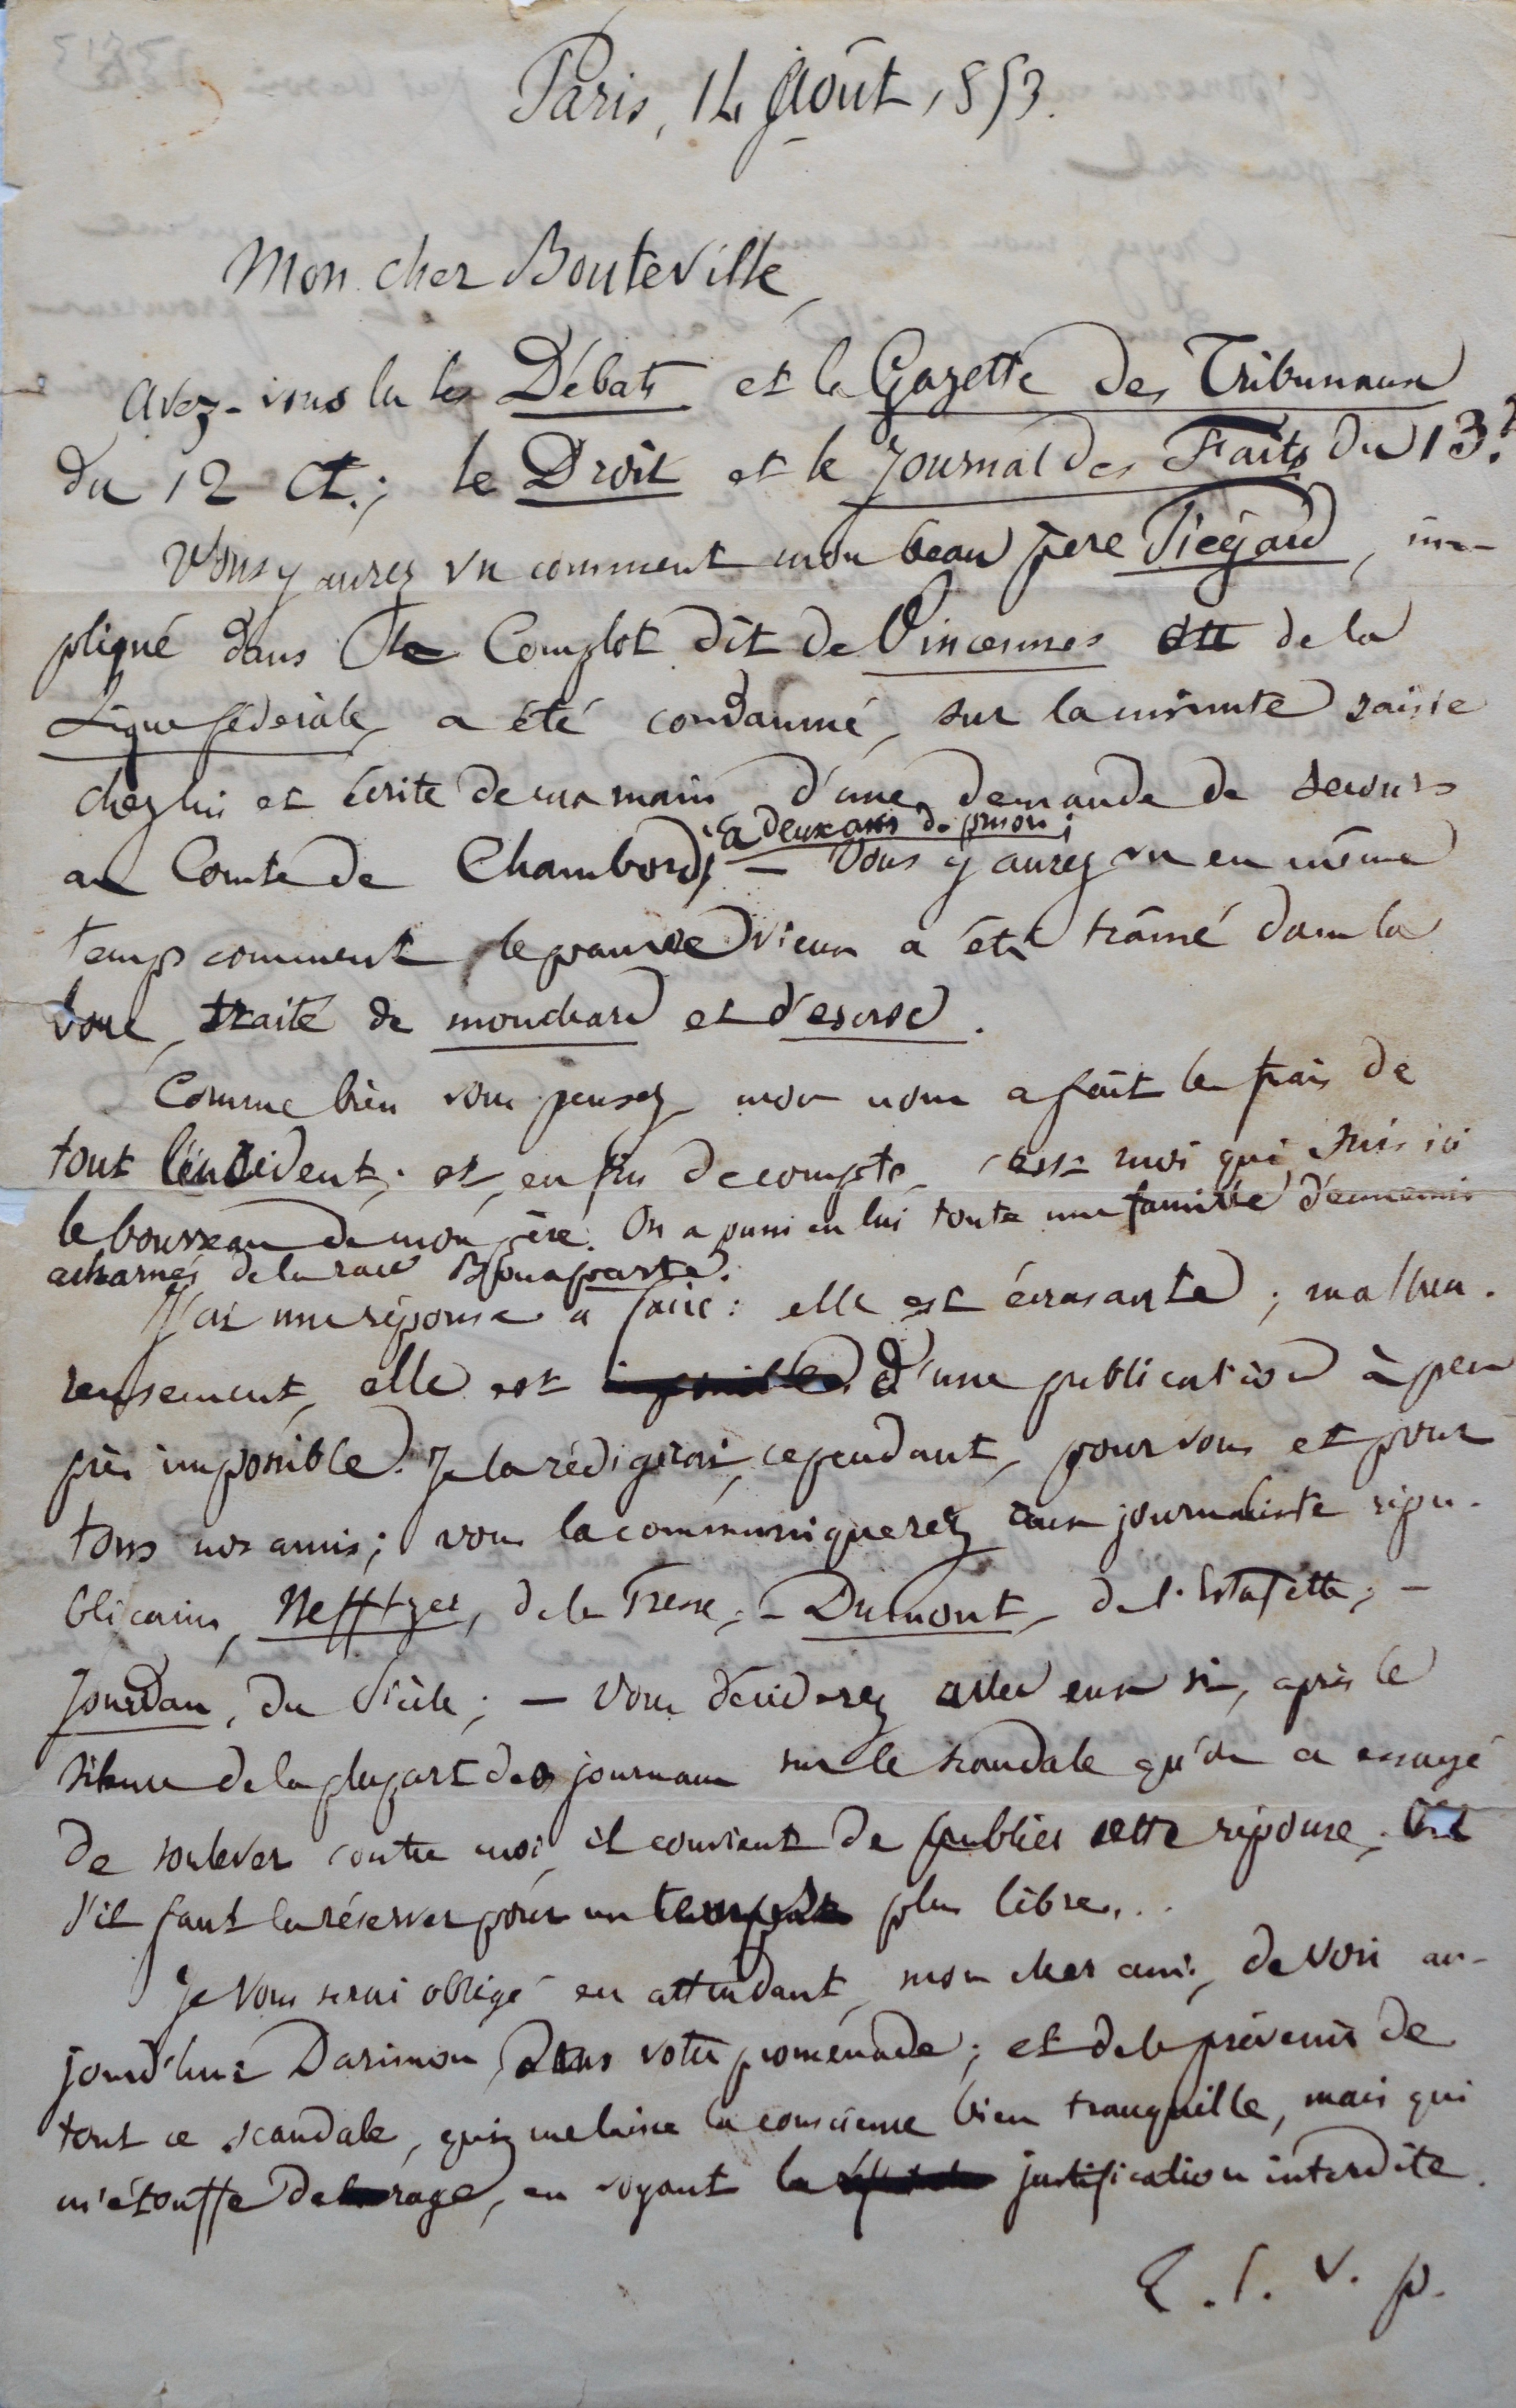 Paris, 14 Août 1853.
Mon cher Bouteville,
Avez-vous lu les Débats et la Gazette des Tribunaux
du 12 ct.; le Droit et le Journal des Faits du 13?
Vous y aurez vu comment mon beau père Piégard, im-
pliqué dans le Complot dit de Vincennes ou de la
Ligue fédérale, a été condamné, sur la minute saisie
chez lui et écrite de ma main, d'une demande de secours
au Comte de Chambord, à deux ans de prison;
— Vous y aurez vu en même
temps comment le pauvre vieux a été traîné dans la
boue, traité de mouchard et d'escroc.
Comme bien vous pensez, mon nom a fait les frais de
tout l'incident; et, en fin de compte, c'est moi qui suis ici
le bourreau de mon père. On a puni en lui toute une famille d'ennemis
acharnés de la race Bonaparte.
J'ai une réponse à faire: elle est écrasante; malheu-
reusement, elle est d'une publication à peu
près impossible. Je la rédigerai, cependant, pour vous et pour
tous nos amis; vous la communiquerez aux journalistes répu-
blicains, Nefftzer, de la Presse; – Dumont, de l'Estafette; –
Jourdan, du Siècle; — Vous déciderez avec eux si, après le
silence de la plupart des journaux sur le scandale qu'on a essayé
de soulever contre moi, il convient de publier cette réponse, ou
s'il faut la réserver pour un temps plus libre...
Je vous serai obligé en attendant, mon cher ami, de voir au-
jourd'hui Darimon, dans votre promenade; et de le prévenir de
tout ce scandale, qui me laisse la conscience bien tranquille, mais qui
m'étouffe de rage, en voyant la justification interdite.
T. S. V. P.